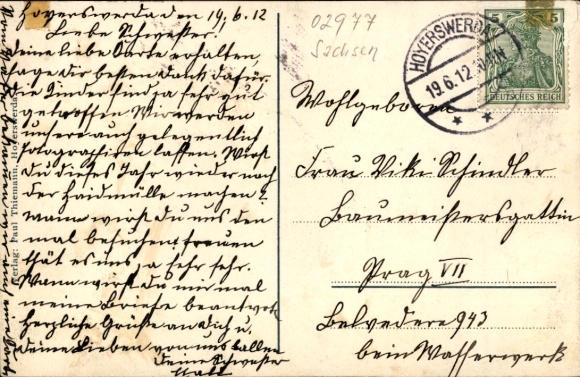 Hoyerswerda den 19.6.12
Liebe Schwester.
deine liebe Karte erhalten,
sage dir besten Dank dafür.
die Kinder sind ja sehr gut
getroffen. Wir werden
unsere auch gelegentlich
fotografieren lassen. Wirst
du dieses Jahr wieder nach
der Haidmühle machen?
wann wirst du uns den
mal besuchen? freuen
thät es uns ja sehr sehr.
Wann wirst du mir mal
meine Briefe beantw.
Herzliche Grüße an dich u.
deine Lieben von uns Allen
deine Schwester
Verlag: Paul Thiemann, Hoyerswerda
02977
Sachsen
HOYERSWERDA
19.6.12
5 5
DEUTSCHES REICH
Wohlgeboren
Frau Viki Schindler
Baumeistersgattin
Prag VII
Belvedere 943
beim Wasserwerk